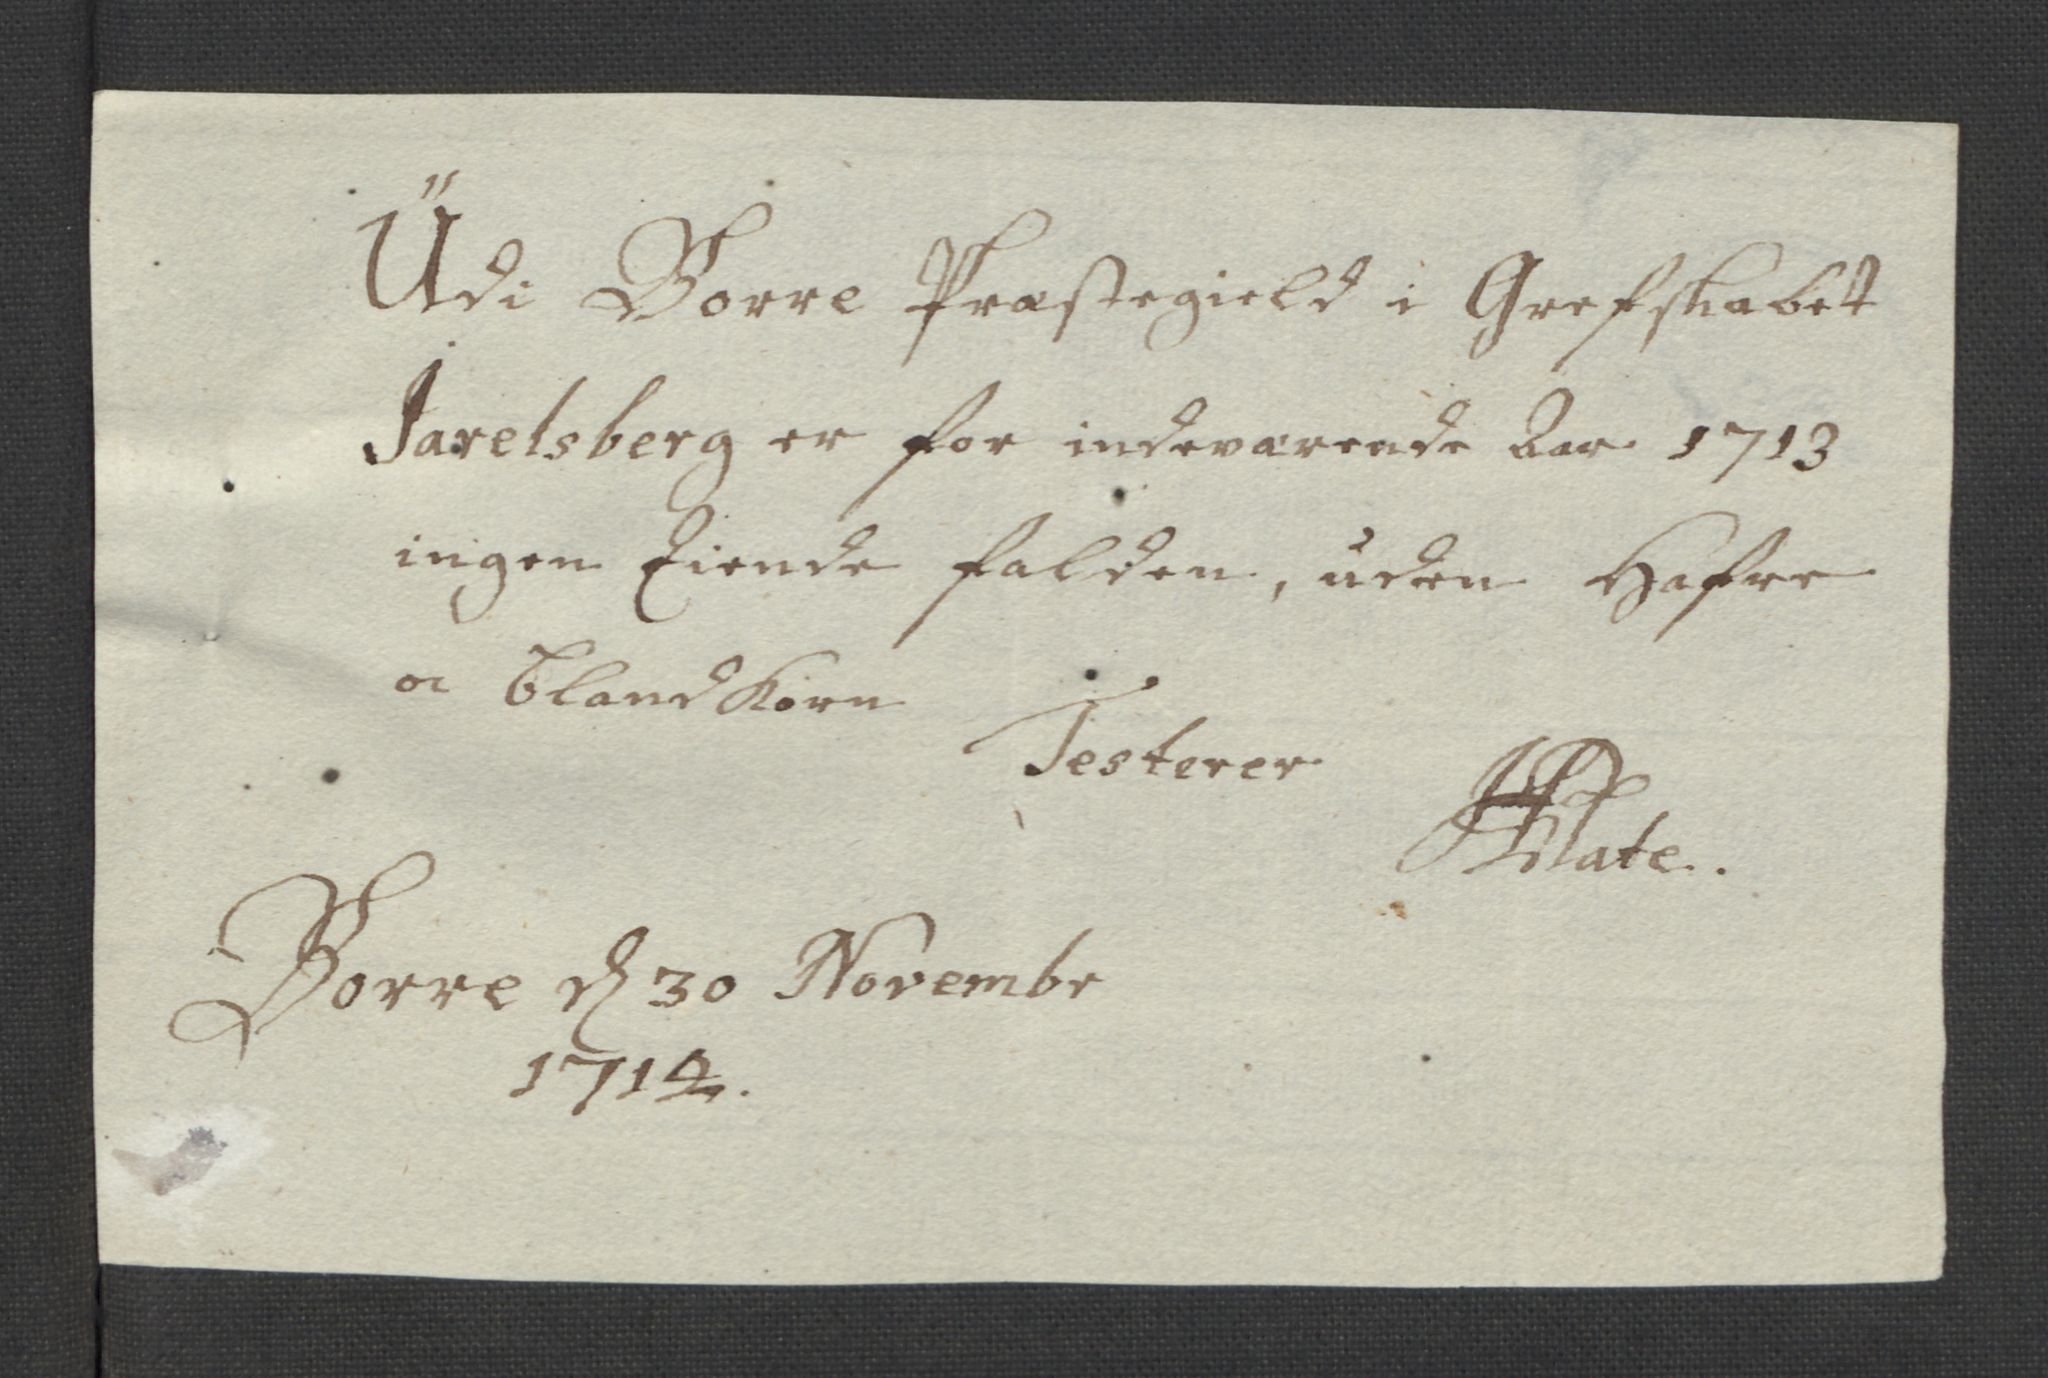 Udi Borre Præstegield i Grefskabet
Jarelsberg er for indeværende Aar 1713
ingen Tiende falden, uden Hafre
oc Blandkorn
Testerer
Mate.
Borre d 30 Novembr
1714.